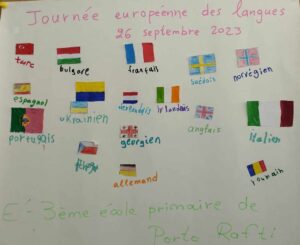 Journée européenne des langues
26 septembre 2023
turc
bulgare
français
suédois
norvégien
espagnol
ukrainien
néerlandais
irlandais
anglais
italien
portugais
géorgien
tchèque
allemand
roumain
E : 3ème école primaire de
Porto Rafti